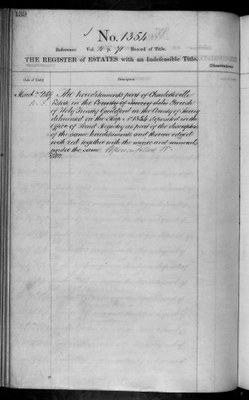 139
No. 1354
Reference: Vol. p. Record of Title.
THE REGISTER of ESTATES with an Indefeasible Title.
Date of Entry. Description.
March The hereditaments part of Charlotteville
Estate in the County of Surrey Parish
of Holy Trinity Guildford in the County of Surrey
delineated on the Map No 1354 deposited in the
Office of Land Registry as part of the description
of the same hereditaments and thereon edged
with red together with the mines and minerals
under the same